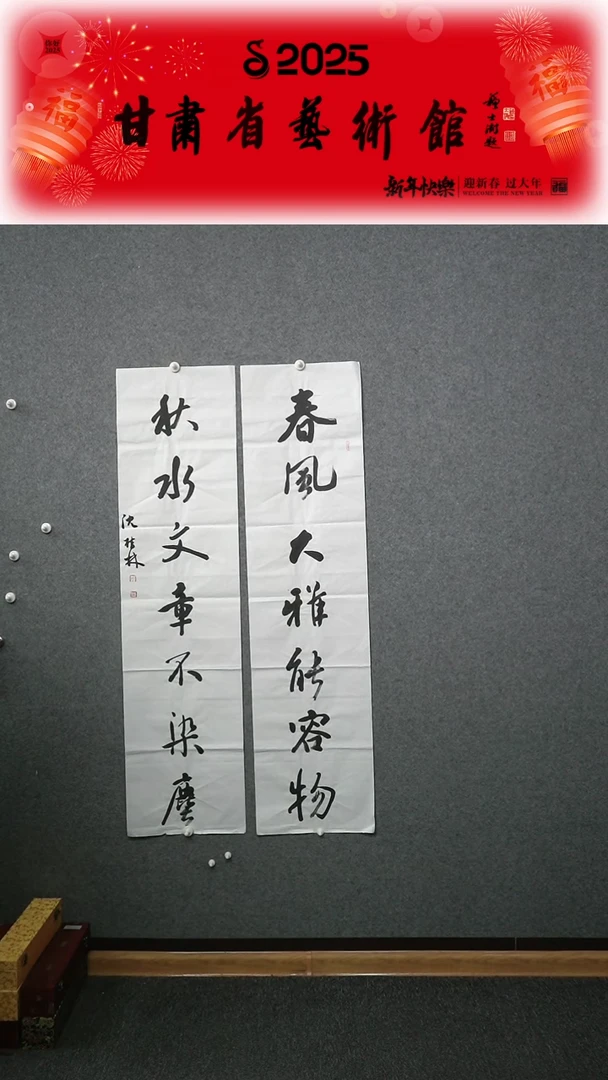 2025
甘肃省藝術館
新年快樂
迎新春 过大年
WELCOME THE NEW YEAR
福
福
春風大雅能容物
秋水文章不染塵
沈桂林